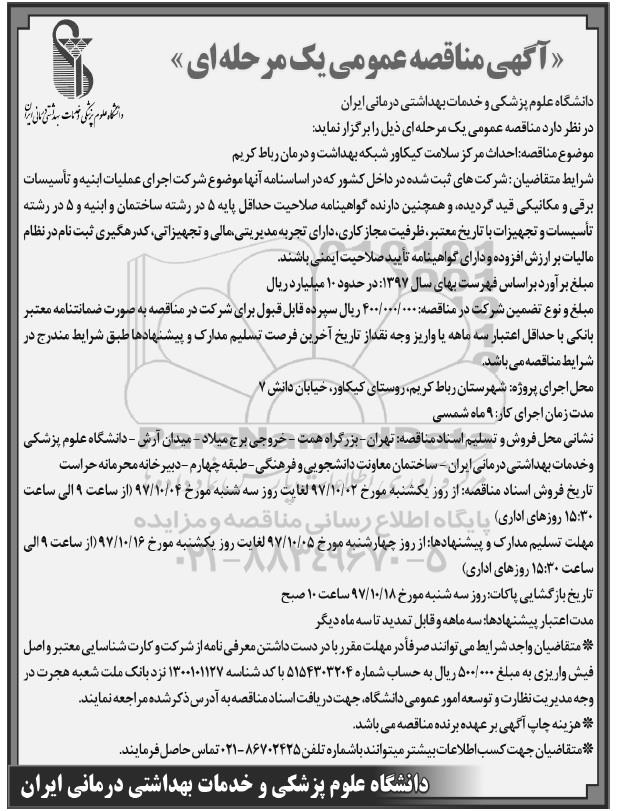 « آگهی مناقصه عمومی یک مرحله ای »
دانشگاه علوم پزشکی و خدمات بهداشتی درمانی ایران
دانشگاه علوم پزشکی و خدمات بهداشتی درمانی ایران
در نظر دارد مناقصه عمومی یک مرحله ای ذیل را برگزار نماید:
موضوع مناقصه: احداث مرکز سلامت کیکاور شبکه بهداشت و درمان رباط کریم
شرایط متقاضیان : شرکت های ثبت شده در داخل کشور که در اساسنامه آنها موضوع شرکت اجرای عملیات ابنیه و تأسیسات
برقی و مکانیکی قید گردیده، و همچنین دارنده گواهینامه صلاحیت حداقل پایه ۵ در رشته ساختمان و ابنیه و ۵ در رشته
تأسیسات و تجهیزات با تاریخ معتبر، ظرفیت مجاز کاری، دارای تجربه مدیریتی، مالی و تجهیزاتی، کد رهگیری ثبت نام در نظام
مالیات بر ارزش افزوده و دارای گواهینامه تأیید صلاحیت ایمنی باشند.
مبلغ برآورد براساس فهرست بهای سال ۱۳۹۷: در حدود ۱۰ میلیارد ریال
مبلغ و نوع تضمین شرکت در مناقصه: ۴۰۰/۰۰۰/۰۰۰ ریال سپرده قابل قبول برای شرکت در مناقصه به صورت ضمانتنامه معتبر
بانکی با حداقل اعتبار سه ماهه یا واریز وجه نقد از تاریخ آخرین فرصت تسلیم مدارک و پیشنهادها طبق شرایط مندرج در
شرایط مناقصه می باشد.
محل اجرای پروژه: شهرستان رباط کریم، روستای کیکاور، خیابان دانش ۷
مدت زمان اجرای کار: ۹ ماه شمسی
نشانی محل فروش و تسلیم اسناد مناقصه: تهران - بزرگراه همت - خروجی برج میلاد - میدان آرش - دانشگاه علوم پزشکی
وخدمات بهداشتی درمانی ایران - ساختمان معاونت دانشجویی و فرهنگی - طبقه چهارم - دبیرخانه محرمانه حراست
تاریخ فروش اسناد مناقصه: از روز یکشنبه مورخ ۹۷/۱۰/۰۲ لغایت روز سه شنبه مورخ ۹۷/۱۰/۰۴ (از ساعت ۹ الی ساعت
۱۵:۳۰ روزهای اداری)
مهلت تسلیم مدارک و پیشنهادها: از روز چهارشنبه مورخ ۹۷/۱۰/۰۵ لغایت روز یکشنبه مورخ ۹۷/۱۰/۱۶ (از ساعت ۹ الی
ساعت ۱۵:۳۰ روزهای اداری)
تاریخ بازگشایی پاکات: روز سه شنبه مورخ ۹۷/۱۰/۱۸ ساعت ۱۰ صبح
مدت اعتبار پیشنهادها: سه ماهه و قابل تمدید تا سه ماه دیگر
* متقاضیان واجد شرایط می توانند صرفاً در مهلت مقرر با در دست داشتن معرفی نامه از شرکت و کارت شناسایی معتبر و اصل
فیش واریزی به مبلغ ۵۰۰/۰۰۰ ریال به حساب شماره ۵۱۵۴۳۰۳۲۰۴ با کد شناسه ۱۳۰۰۱۰۱۱۲۷ نزد بانک ملت شعبه هجرت در
وجه مدیریت نظارت و توسعه امور عمومی دانشگاه، جهت دریافت اسناد مناقصه به آدرس ذکر شده مراجعه نمایند.
* هزینه چاپ آگهی بر عهده برنده مناقصه می باشد.
* متقاضیان جهت کسب اطلاعات بیشتر میتوانند با شماره تلفن ۸۶۷۰۲۴۲۵-۰۲۱ تماس حاصل فرمایند.
دانشگاه علوم پزشکی و خدمات بهداشتی درمانی ایران
ParsNamadData
پایگاه اطلاع رسانی مناقصه و مزایده
۰۲۱-۸۸۳۴۹۶۷۰-۵